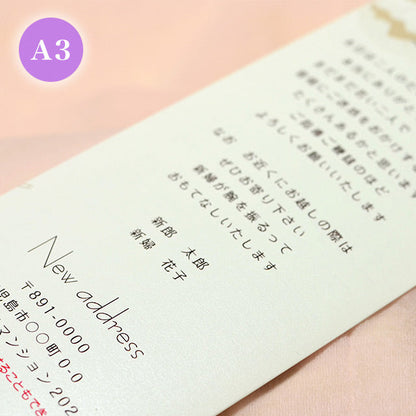 A3
まだまだ若い二人で
ご迷惑をおかけす
たくさんあるかと思いま
ご指導ご鞭撻のほど
よろしくお願いいたします
なお お近くにお越しの際は
ぜひお寄り下さい
新婦が腕を振るって
おもてなしいたします
新郎 太郎
新婦 花子
New address
〒891-0000
児島市〇〇町0-0
マンション202
ることもでき